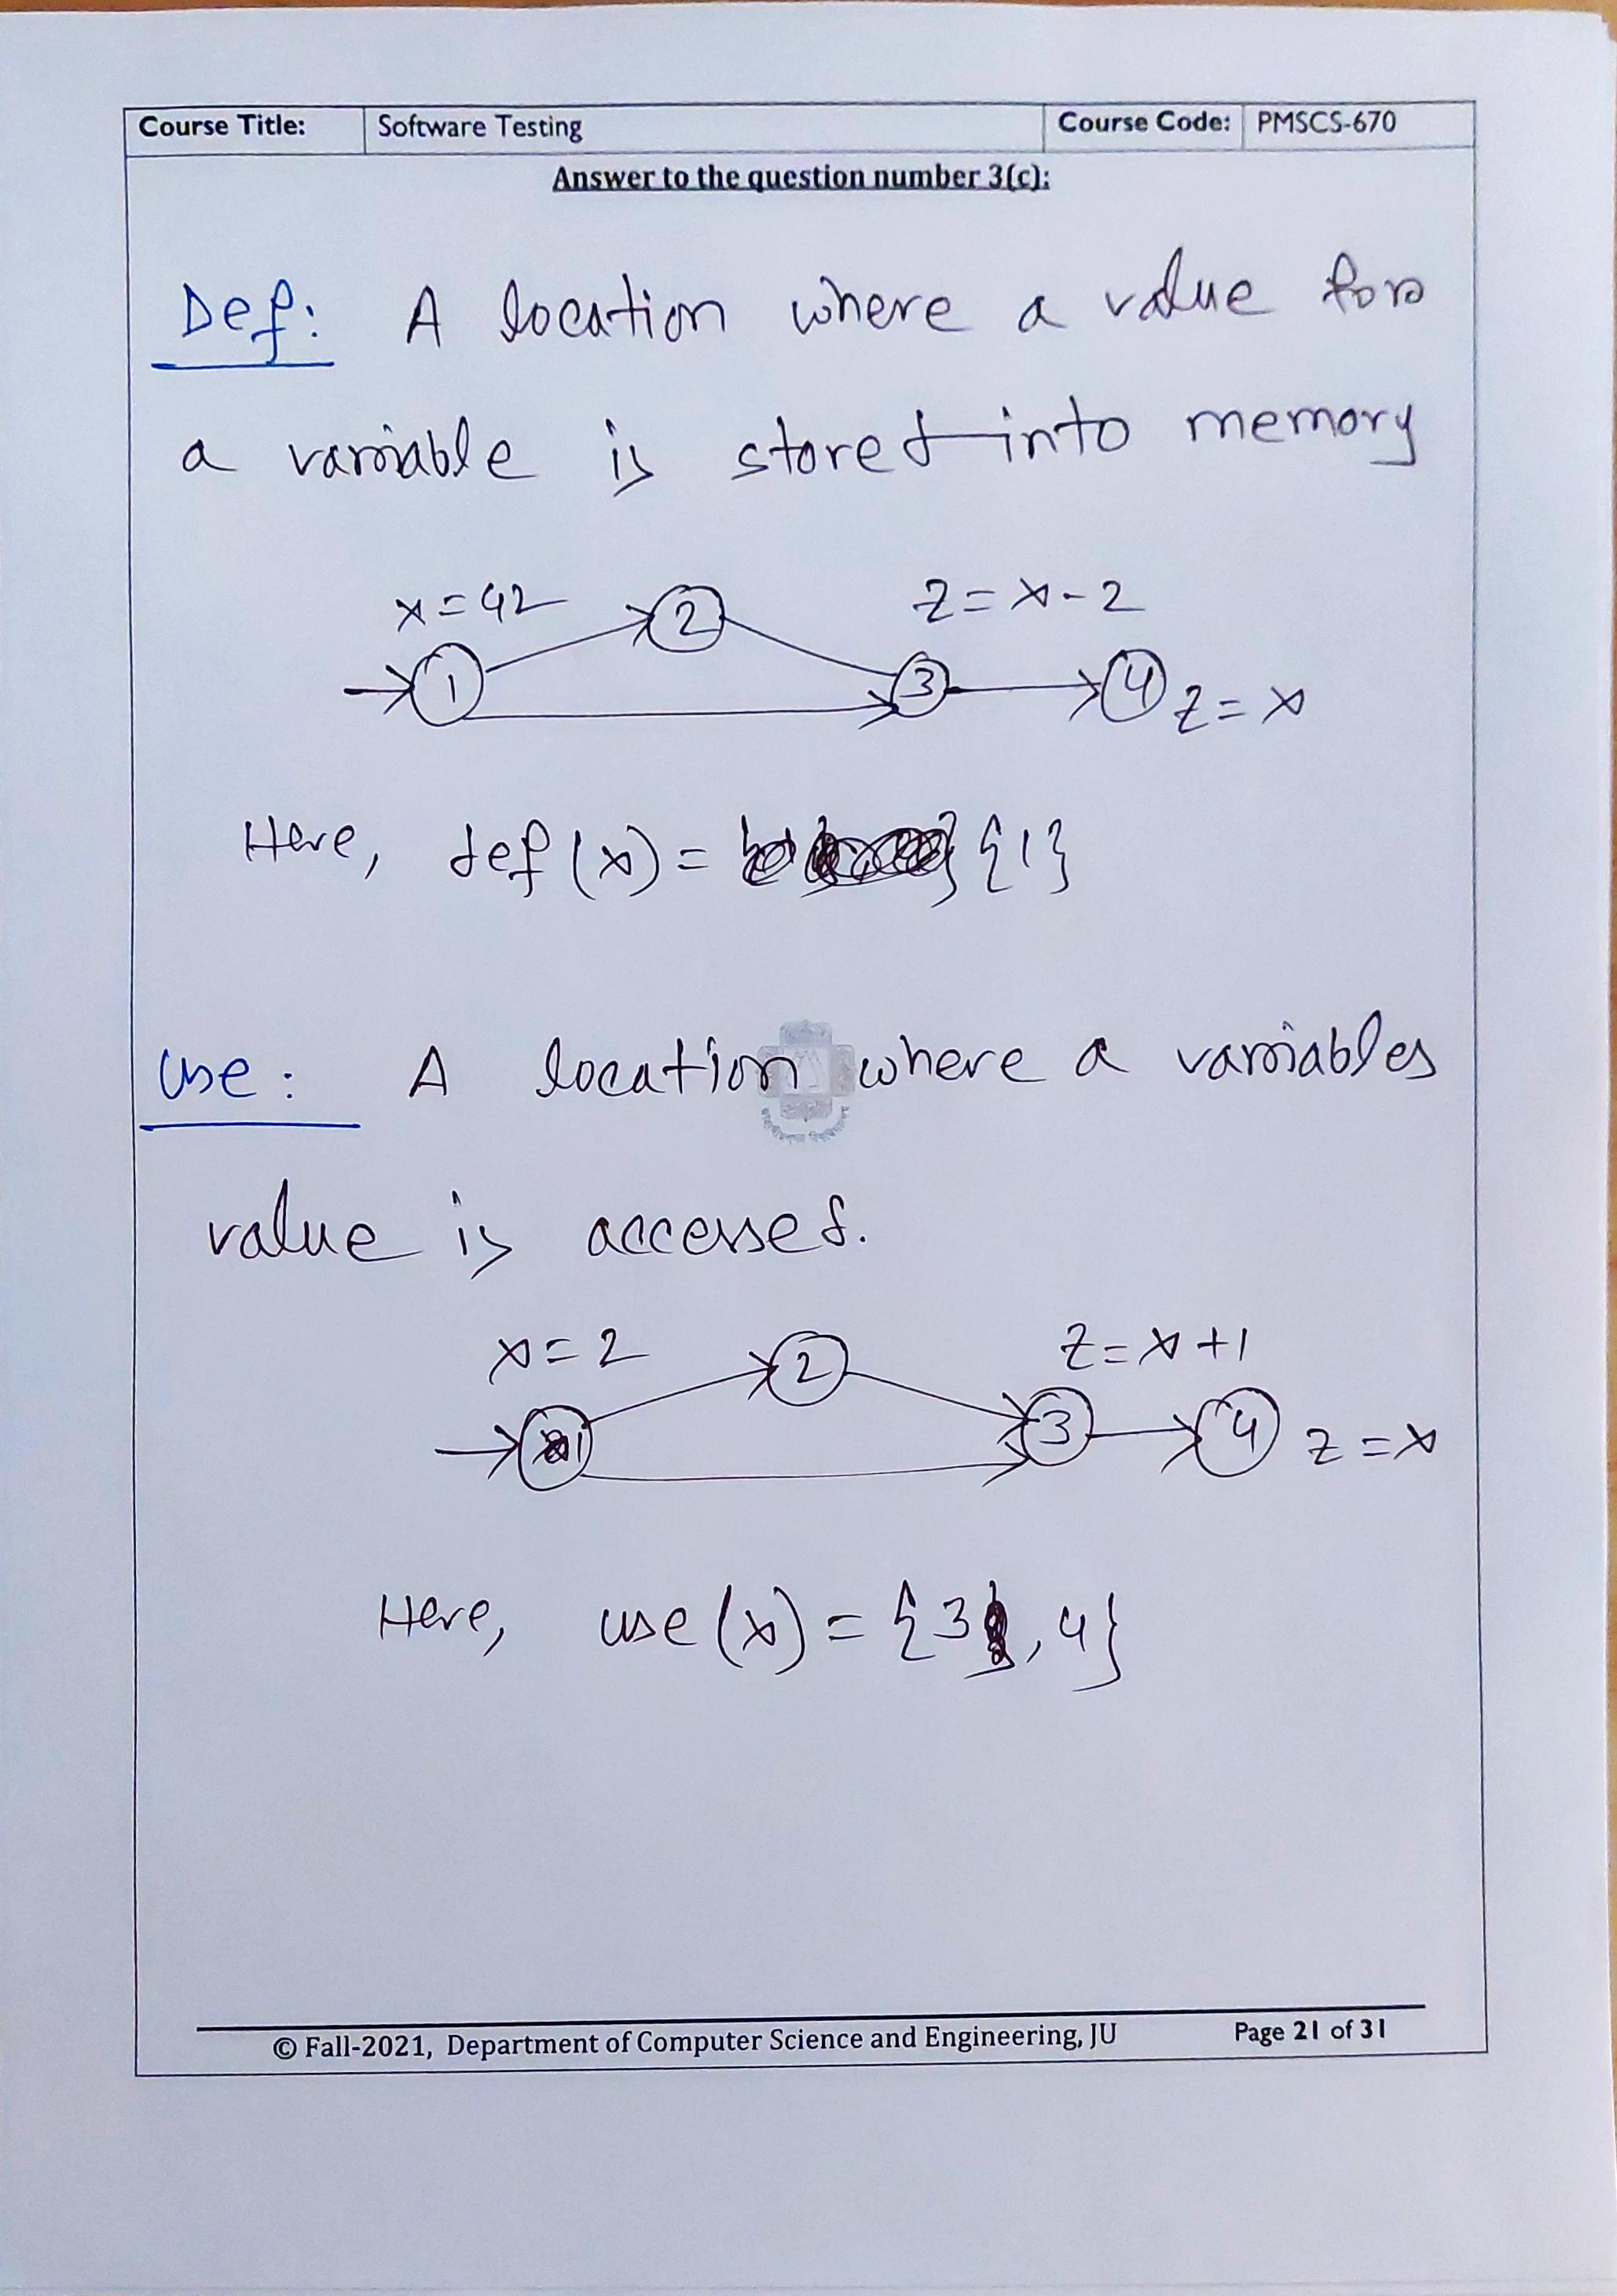 Course Title: Software Testing Course Code: PMSCS-670
Answer to the question number 3(c):
Def: A location where a value for
a variable is stored into memory
x = 42 2 z = x - 2
1 3 4 z = x
Here, def(x) = {1}
Use: A location where a variables
value is accessed.
x = 2 2 z = x + 1
1 3 4 z = x
Here, use(x) = {3, 4}
© Fall-2021, Department of Computer Science and Engineering, JU Page 21 of 31